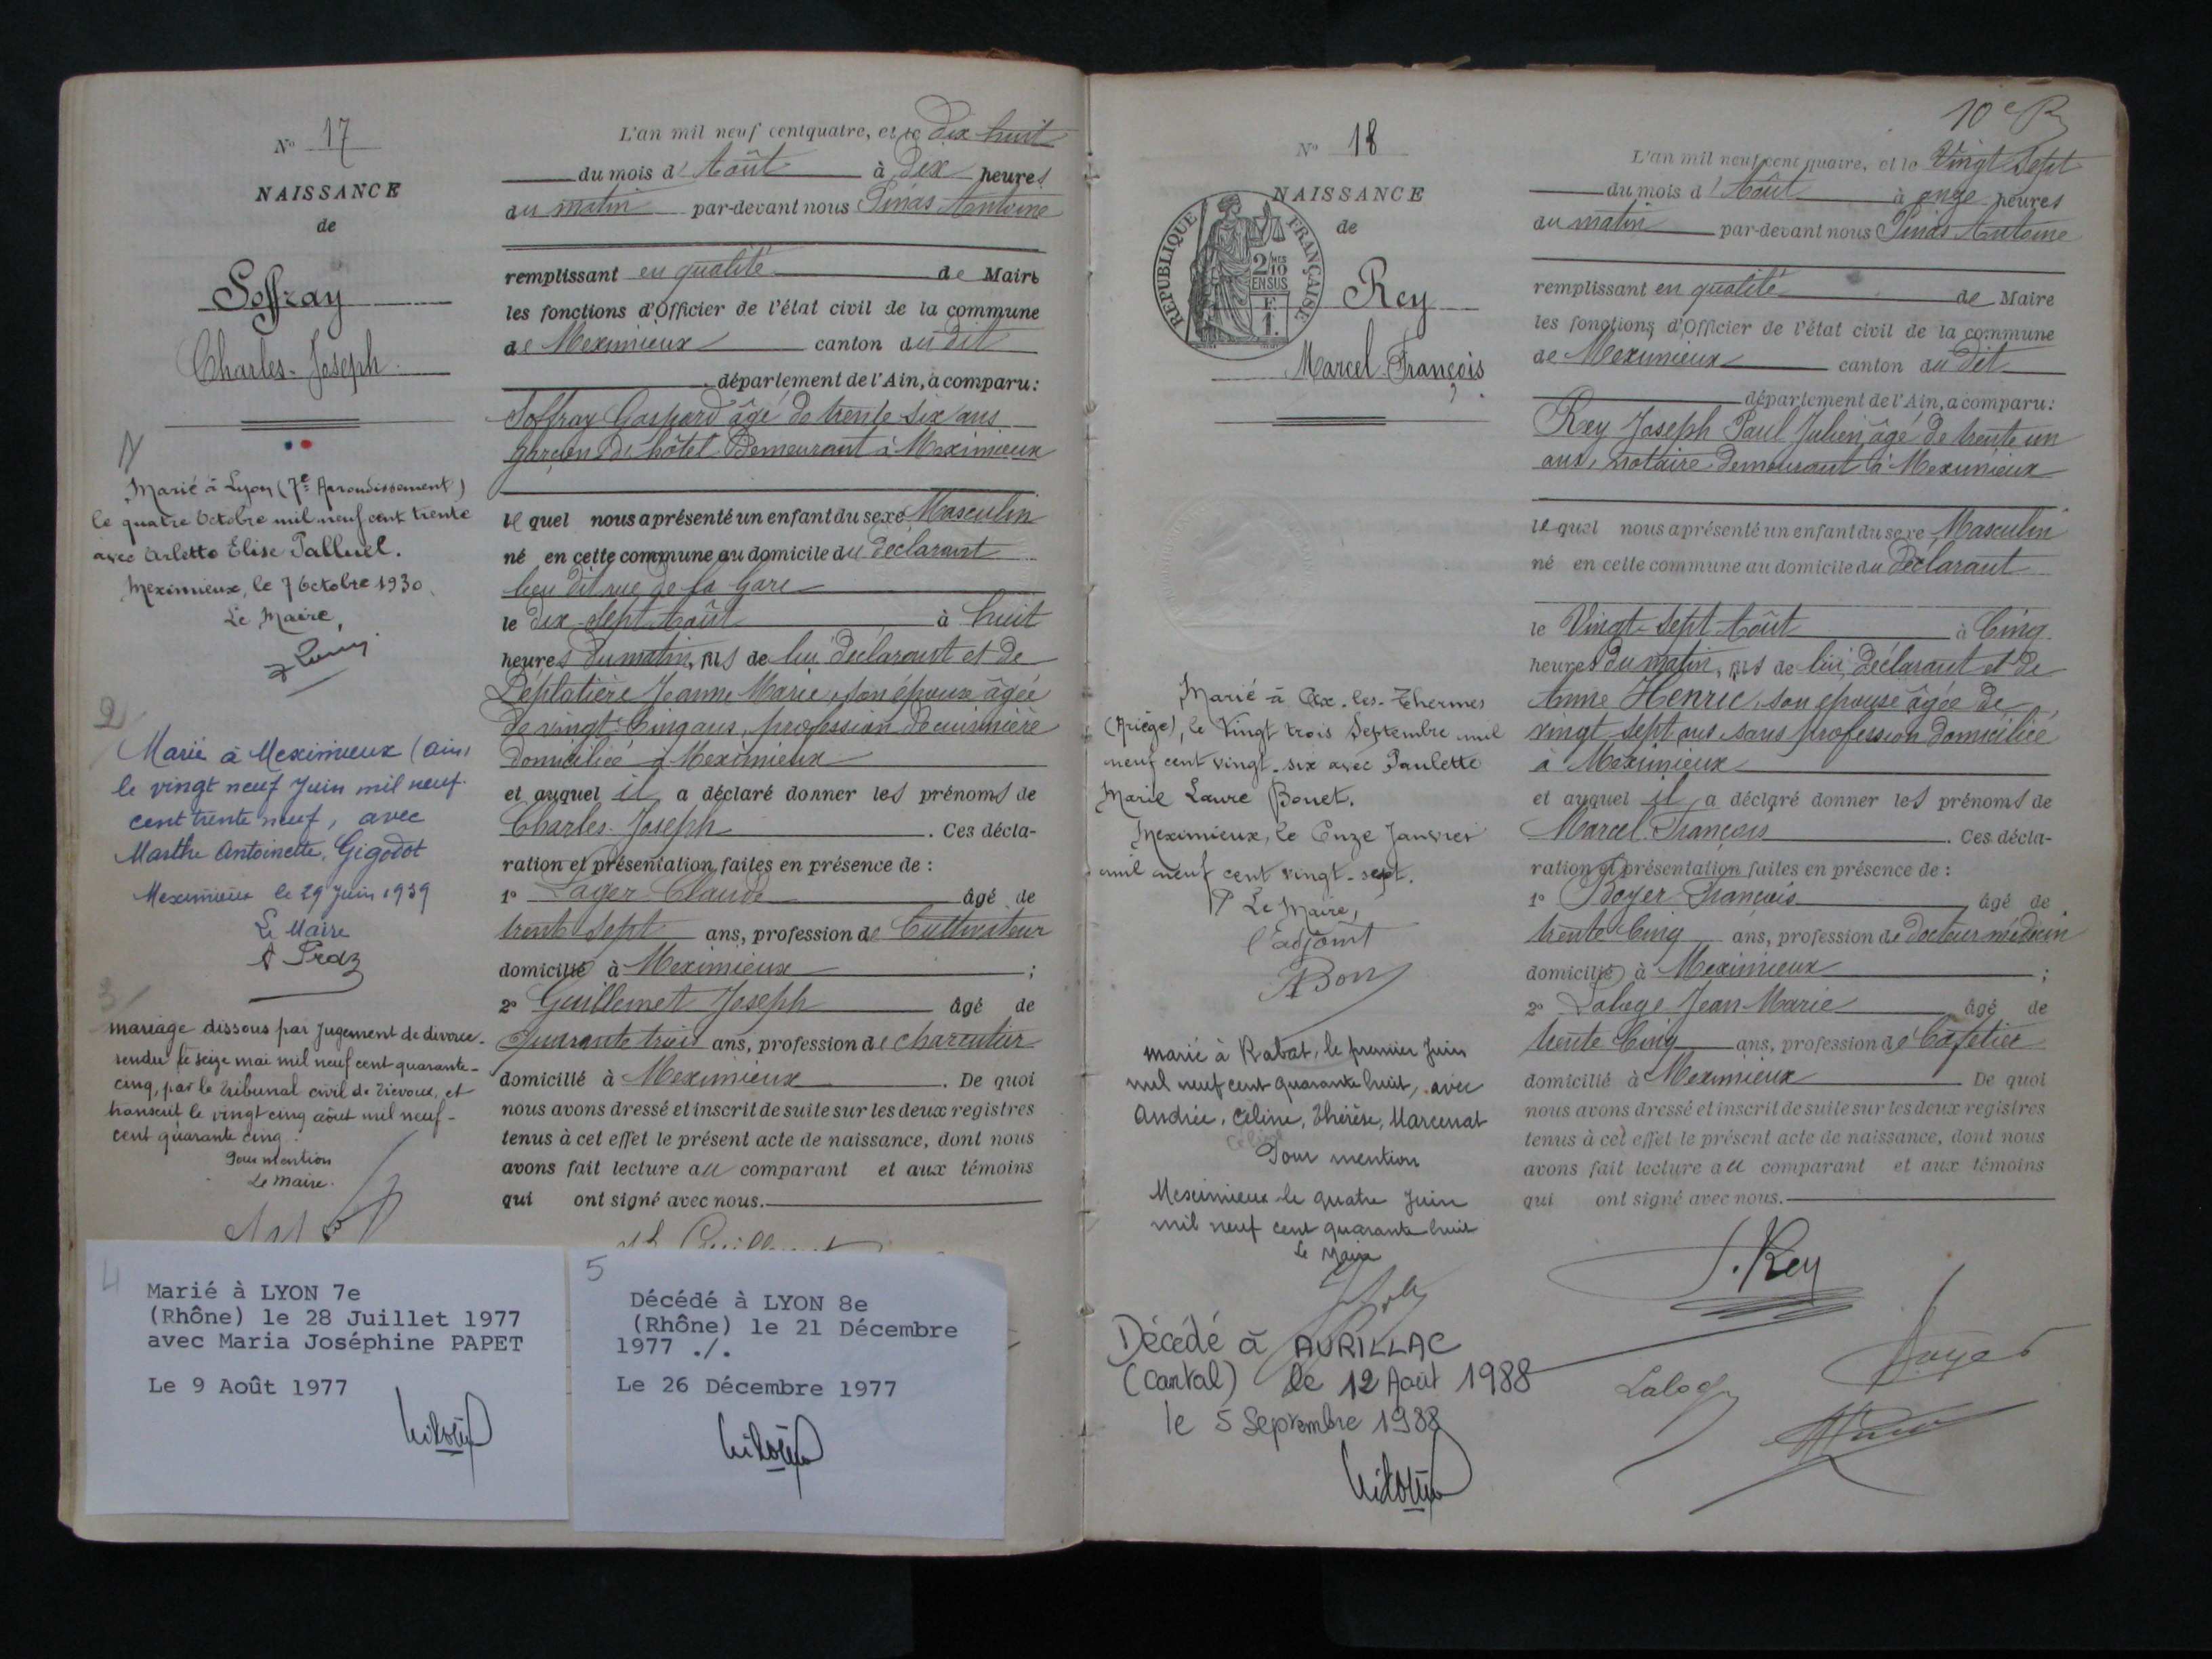 N° 17
NAISSANCE
de
Soffray
Charles-Joseph
1/
Marié à Lyon (7e Arrondissement)
le quatre Octobre mil neuf cent trente
avec Arlette Élise Palluel.
Meximieux, le 7 Octobre 1930.
Le Maire,
2/
Marié à Meximieux (Ain)
le vingt neuf Juin mil neuf
cent trente neuf, avec
Marthe Antoinette, Gigodot
Meximieux le 29 Juin 1939
Le Maire
3/
mariage dissous par jugement de divorce
rendu le seize mai mil neuf cent quarante-
cinq, par le tribunal civil de Trévoux, et
transcrit le vingt cinq août mil neuf-
cent quarante cinq.
Pour mention
Le Maire.
4
Marié à LYON 7e
(Rhône) le 28 Juillet 1977
avec Maria Joséphine PAPET
Le 9 Août 1977
L'an mil neuf centquatre, et le dix huit
du mois d'Août à dix heures
du matin par-devant nous Pinas Antoine
remplissant en qualité de Maire
les fonctions d'Officier de l'état civil de la commune
de Meximieux canton du dit
département de l'Ain, a comparu:
Soffray Gaspard âgé de trente six ans
garçon d'hôtel Demeurant à Meximieux
lequel nous a présenté un enfant du sexe Masculin
né en cette commune au domicile du déclarant
lieu dit rue de la Gare
le dix-sept Août à huit
heures du matin, fils de lui déclarant et de
Déplatière Jeanne Marie, son épouse âgée
de vingt cinq ans, profession de cuisinière
domiciliée à Meximieux
et auquel il a déclaré donner les prénoms de
Charles-Joseph. Ces décla-
ration et présentation faites en présence de :
1° Lager Claude âgé de
trente sept ans, profession de Cultivateur
domicilié à Meximieux ;
2° Guillemet Joseph âgé de
quarante trois ans, profession de charcutier
domicilié à Meximieux. De quoi
nous avons dressé et inscrit de suite sur les deux registres
tenus à cet effet le présent acte de naissance, dont nous
avons fait lecture au comparant et aux témoins
qui ont signé avec nous.
5
Décédé à LYON 8e
(Rhône) le 21 Décembre
1977 ./.
Le 26 Décembre 1977
N° 18
NAISSANCE
de
RÉPUBLIQUE FRANÇAISE
2/10
EN SUS
F.
1.
Rey
Marcel-François
Marié à Ax-les-Thermes
(Ariège), le Vingt trois Septembre mil
neuf cent vingt-six avec Paulette
Marie Laure Bonet.
Meximieux, le Onze Janvier
mil neuf cent vingt-sept.
P Le Maire,
l'adjoint
Bon
marié à Rabat, le premier Juin
mil neuf cent quarante huit, avec
Andrée, Céline, Thérèse, Marcenat
Céline
Pour mention
Meximieux le quatre Juin
mil neuf cent quarante huit
Le Maire
Décédé à AURILLAC
(Cantal) le 12 Août 1988
le 5 Septembre 1988
10e R
L'an mil neuf cent quatre, et le Vingt Sept
du mois d'Août à onze heures
du matin par-devant nous Pinas Antoine
remplissant en qualité de Maire
les fonctions d'Officier de l'état civil de la commune
de Meximieux canton du dit
département de l'Ain, a comparu:
Rey Joseph Paul Julien, âgé de trente un
ans, notaire demeurant à Meximieux
lequel nous a présenté un enfant du sexe Masculin
né en cette commune au domicile du Déclarant
le Vingt-Sept Août à Cinq
heures du matin, fils de lui, déclarant et de
Anne Henric, son épouse âgée de
vingt sept ans sans profession domiciliée
à Meximieux
et auquel il a déclaré donner les prénoms de
Marcel-François. Ces décla-
ration et présentation faites en présence de :
1° Boyer François âgé de
trente Cinq ans, profession de docteur médecin
domicilié à Meximieux ;
2° Laloge Jean-Marie âgé de
trente Cinq ans, profession de Cafetier
domicilié à Meximieux De quoi
nous avons dressé et inscrit de suite sur les deux registres
tenus à cet effet le présent acte de naissance, dont nous
avons fait lecture au comparant et aux témoins
qui ont signé avec nous.
J. Rey
Boyer
Laloge